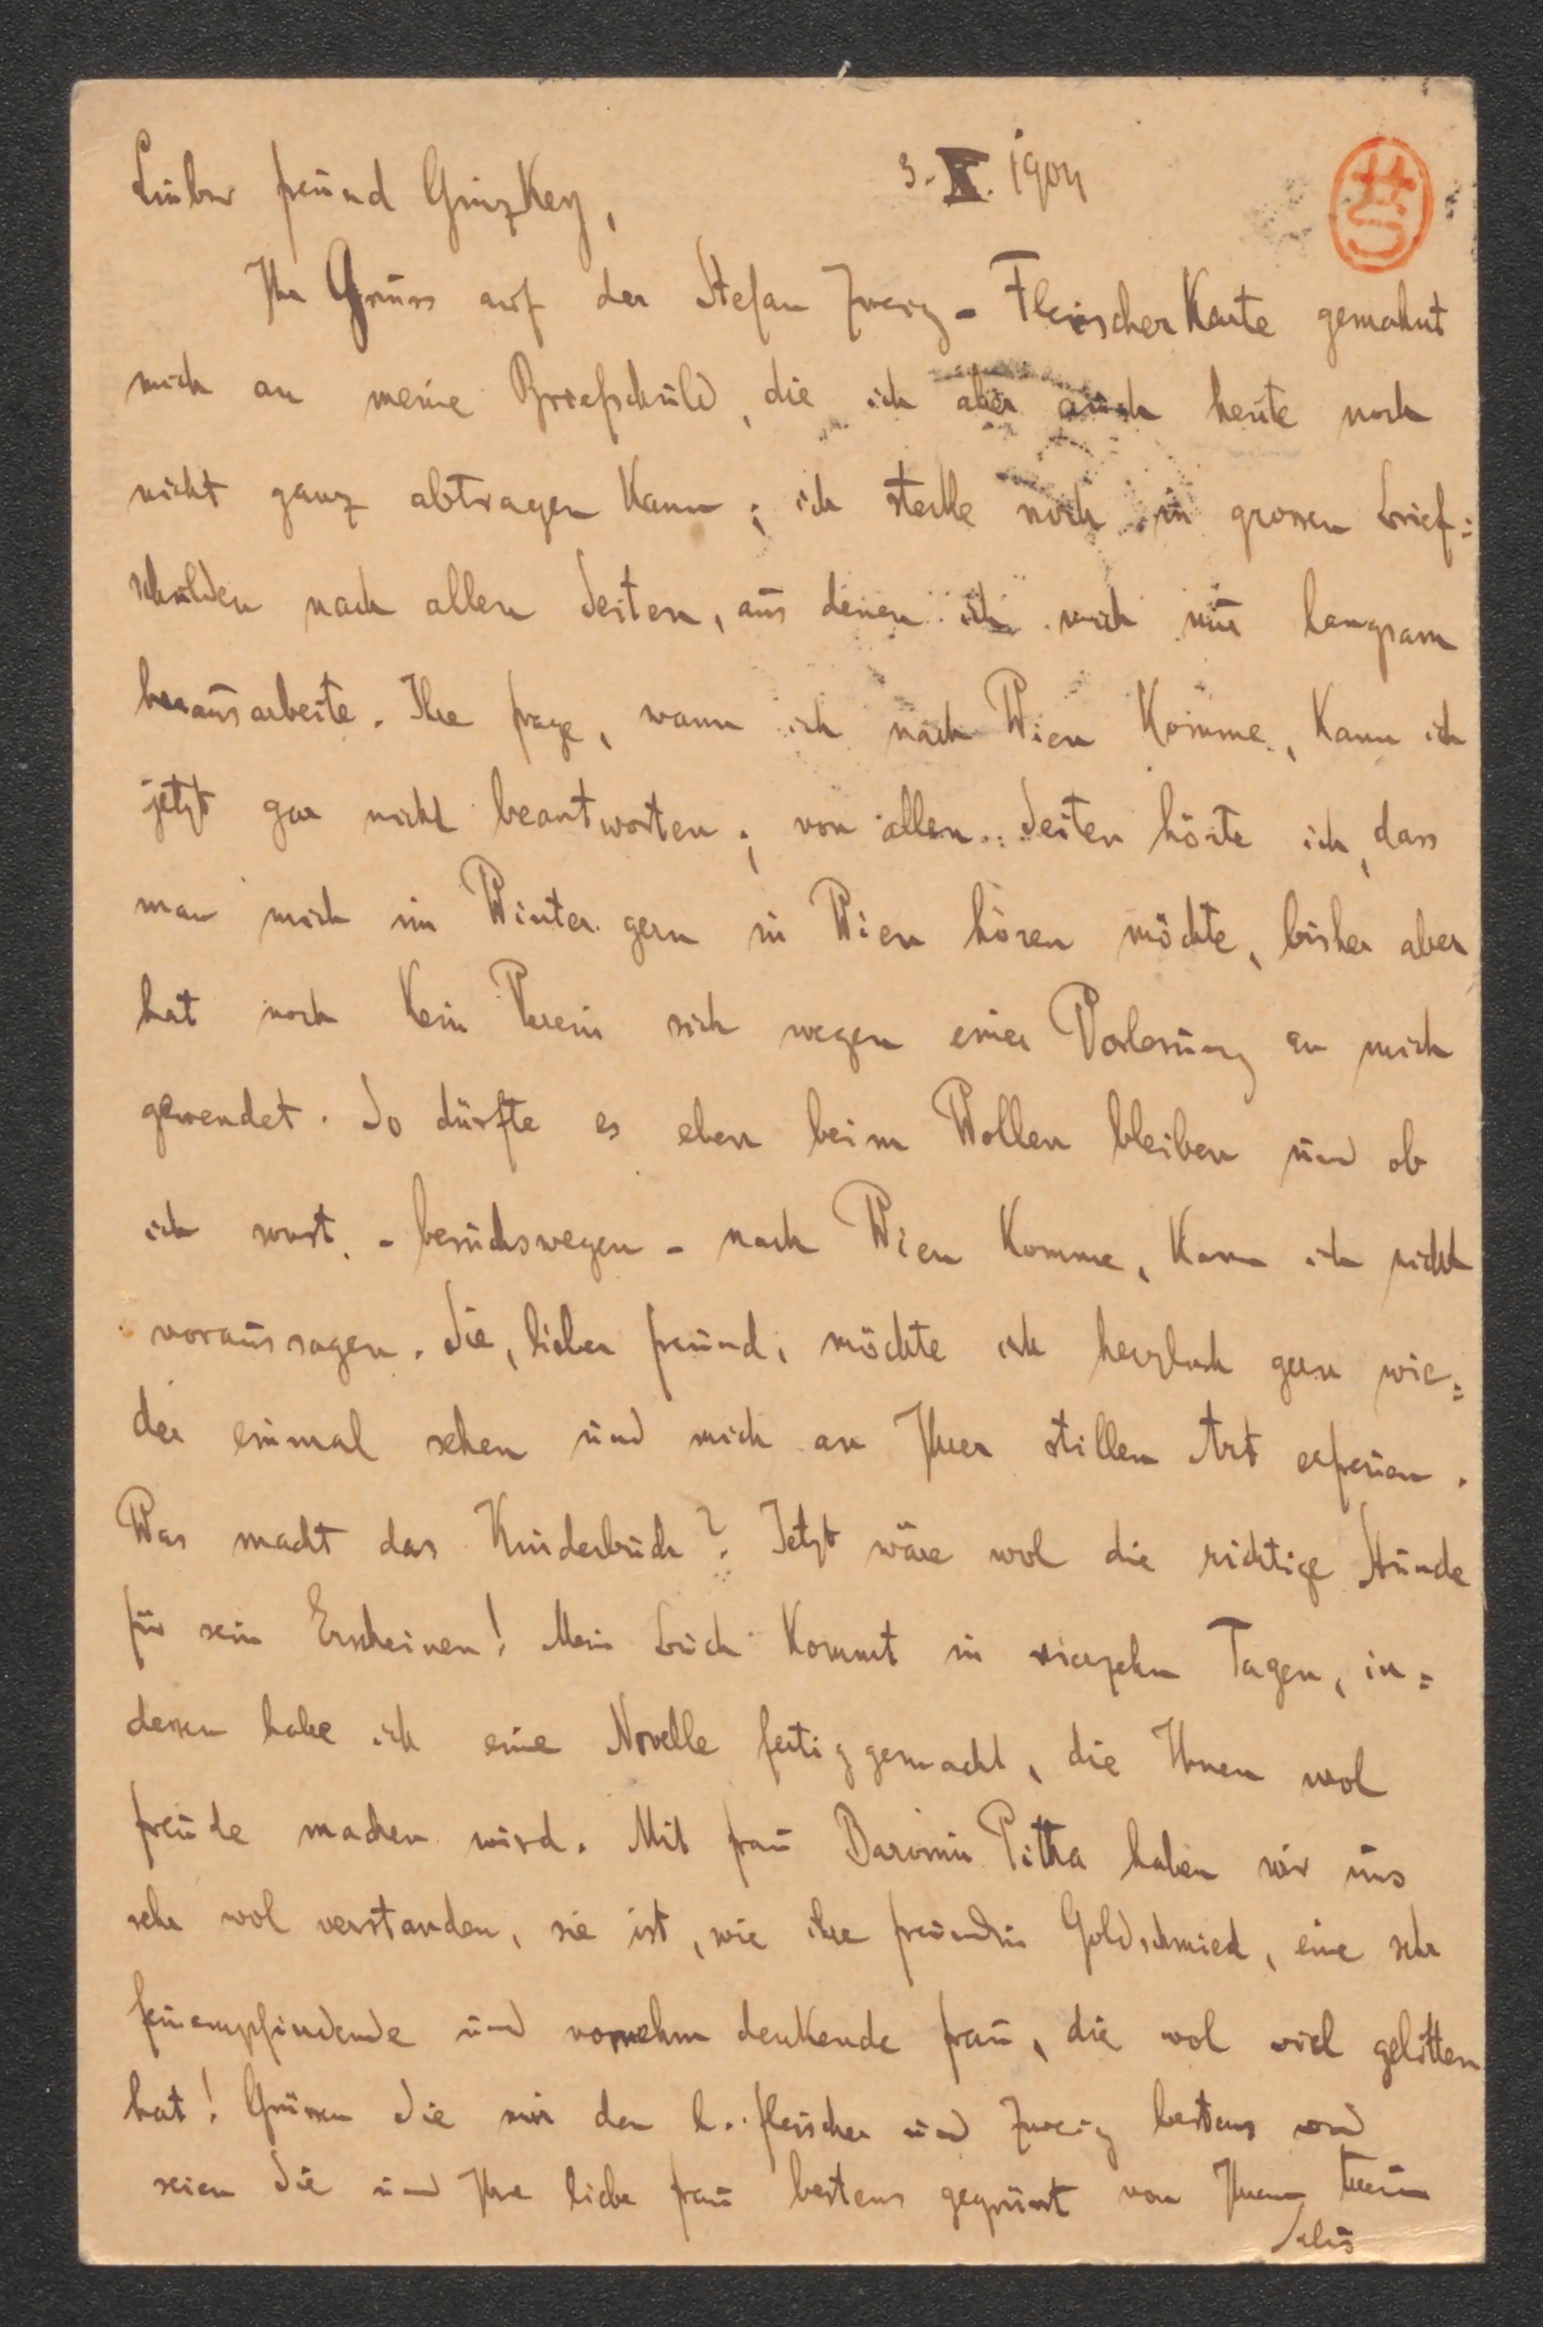 Lieber Freund Ginzkey, 3. X. 1904
Ihr Gruss auf der Stefan Zweig - Fleischer Karte gemahnt
mich an meine Briefschuld, die ich aber auch heute noch
nicht ganz abtragen kann; ich stecke noch in grossen Brief=
schulden nach allen Seiten, aus denen ich mich nur langsam
herausarbeite. Ihre Frage, wann ich nach Wien komme, kann ich
jetzt gar nicht beantworten; von allen Seiten hörte ich, dass
man mich im Winter gern in Wien hören möchte, bisher aber
hat noch kein Verein sich wegen einer Vorlesung an mich
gewendet. So dürfte es eben beim Wollen bleiben und ob
ich sonst - besuchswegen - nach Wien komme, kann ich nicht
voraussagen. Sie, lieber Freund, möchte ich herzlich gern wie=
der einmal sehen und mich an Ihrer stillen Art erfreuen.
Was macht das Kinderbuch? Jetzt wäre wol die richtige Stunde
für sein Erscheinen! Mein Buch kommt in vierzehn Tagen, in=
dessen habe ich eine Novelle fertig gemacht, die Ihnen wol
Freude machen wird. Mit Frau Baronin Pitha haben wir uns
sehr wol verstanden, sie ist, wie ihre Freundin Goldschmied, eine sehr
feinempfindende und vornehm denkende Frau, die wol viel gelitten
hat! Grüssen Sie mir den l. Fleischer und Zweig bestens und
seien Sie und Ihre liebe Frau bestens gegrüsst von Ihrem treuen
Salus